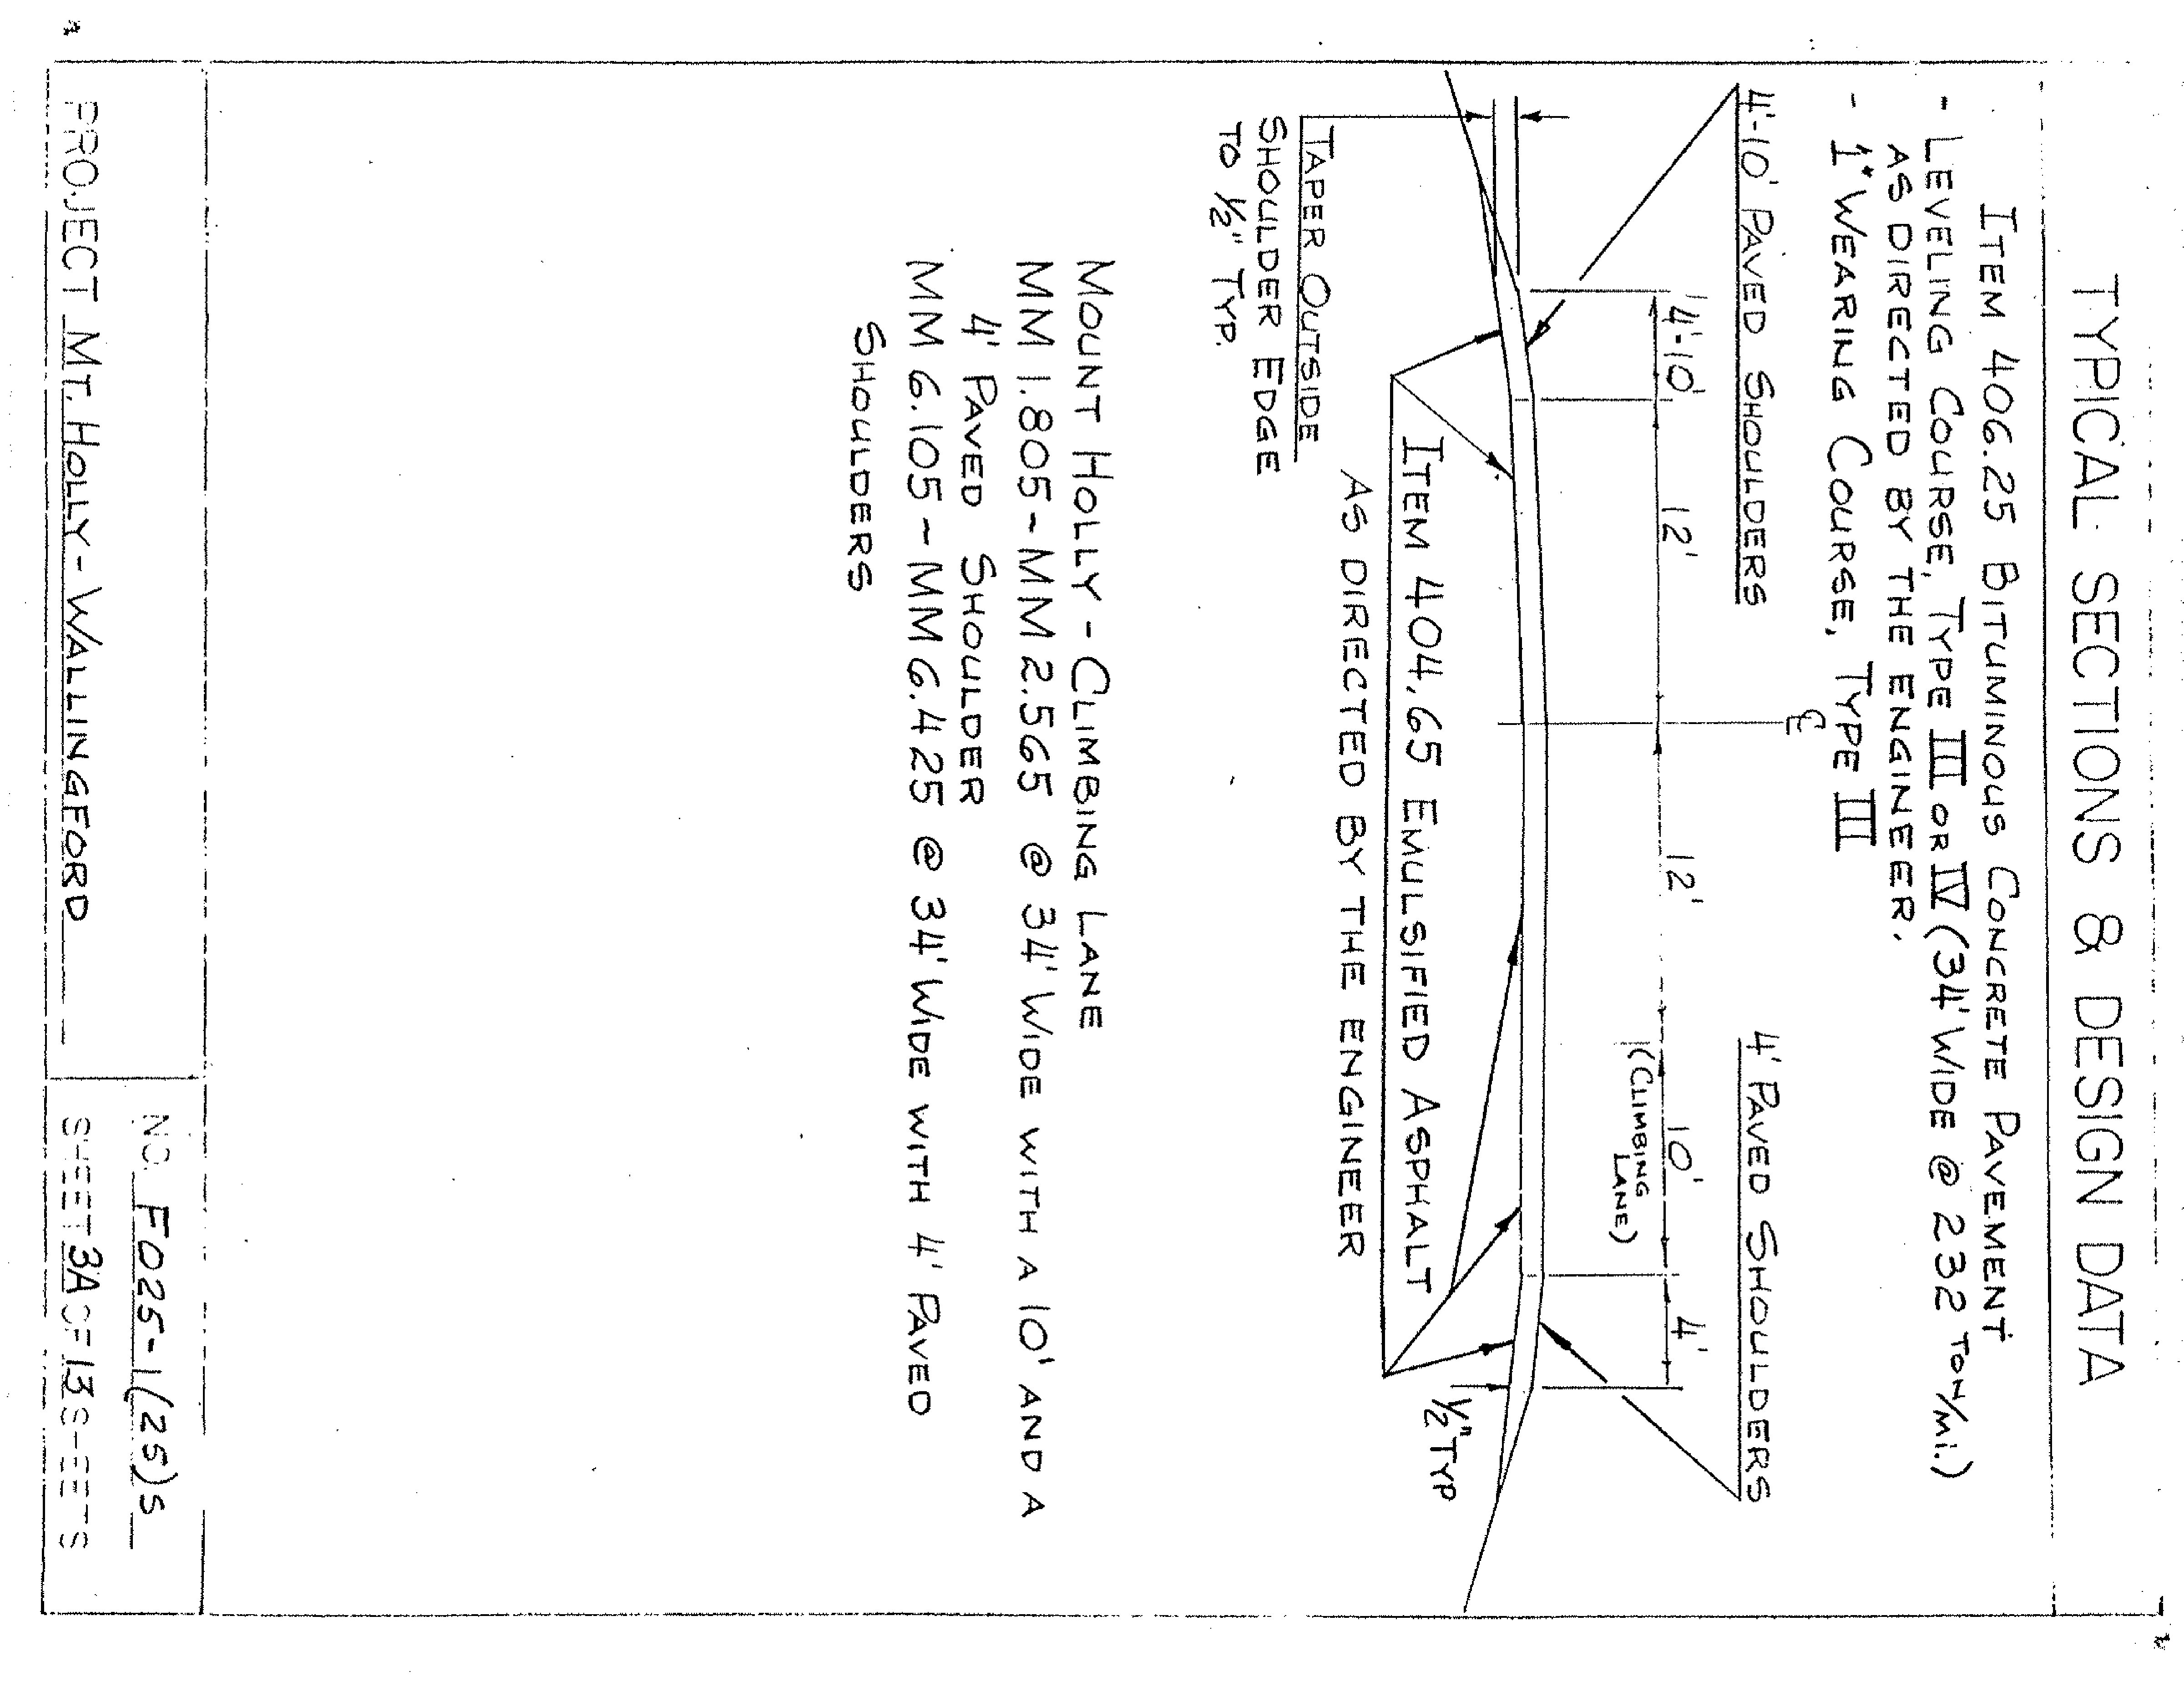 TYPICAL SECTIONS & DESIGN DATA
ITEM 406.25 BITUMINOUS CONCRETE PAVEMENT
- LEVELING COURSE, TYPE III OR IV (34' WIDE @ 232 TON/MI.)
AS DIRECTED BY THE ENGINEER.
- 1" WEARING COURSE, TYPE III
℄
4'-10' PAVED SHOULDERS
4' PAVED SHOULDERS
4'-10'
12'
12'
10'
4'
(CLIMBING
LANE)
1/2" TYP
ITEM 404.65 EMULSIFIED ASPHALT
AS DIRECTED BY THE ENGINEER
TAPER OUTSIDE
SHOULDER EDGE
TO 1/2" TYP.
MOUNT HOLLY - CLIMBING LANE
MM 1.805 - MM 2.565 @ 34' WIDE WITH A 10' AND A
4' PAVED SHOULDER
MM 6.105 - MM 6.425 @ 34' WIDE WITH 4' PAVED
SHOULDERS
PROJECT MT. HOLLY - WALLINGFORD
NO. F025-1(25)S
SHEET 3A OF 13 SHEETS